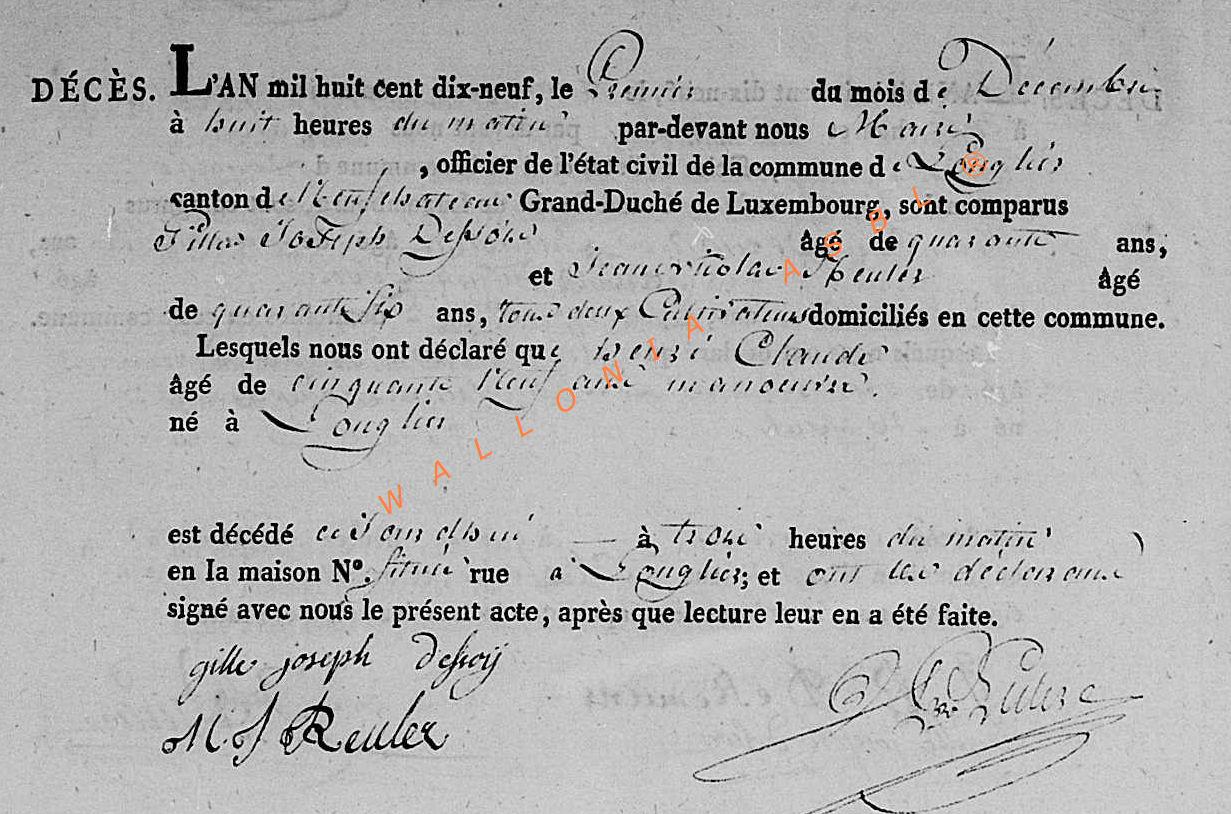 DÉCÈS. L'AN mil huit cent dix-neuf, le Premier du mois de Décembre
à huit heures du matin par-devant nous Maire
, officier de l'état civil de la commune de Longlier
canton de Neufchateau Grand-Duché de Luxembourg, sont comparus
Gilles Joseph Dessoÿ âgé de quarante ans,
et Jean Nicolas Reuler âgé
de quarante six ans, tous deux Cultivateurs domiciliés en cette commune.
Lesquels nous ont déclaré que henri Claude
âgé de cinquante Neuf ans manoeuvre.
né à Longlier
est décédé cejourdhui à trois heures du matin
en la maison N°. située rue a Longlier; et ont les déclarans
signé avec nous le présent acte, après que lecture leur en a été faite.
gille joseph dessoÿ
Reuler
WALLONIA ASBL ®